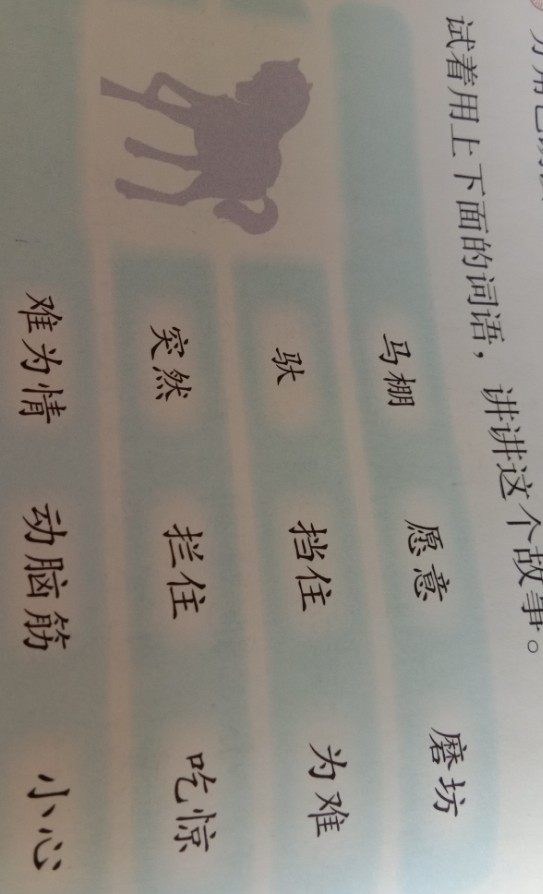 试着用上下面的词语，讲讲这个故事。
马棚 愿意 磨坊
驮 挡住 为难
突然 拦住 吃惊
难为情 动脑筋 小心